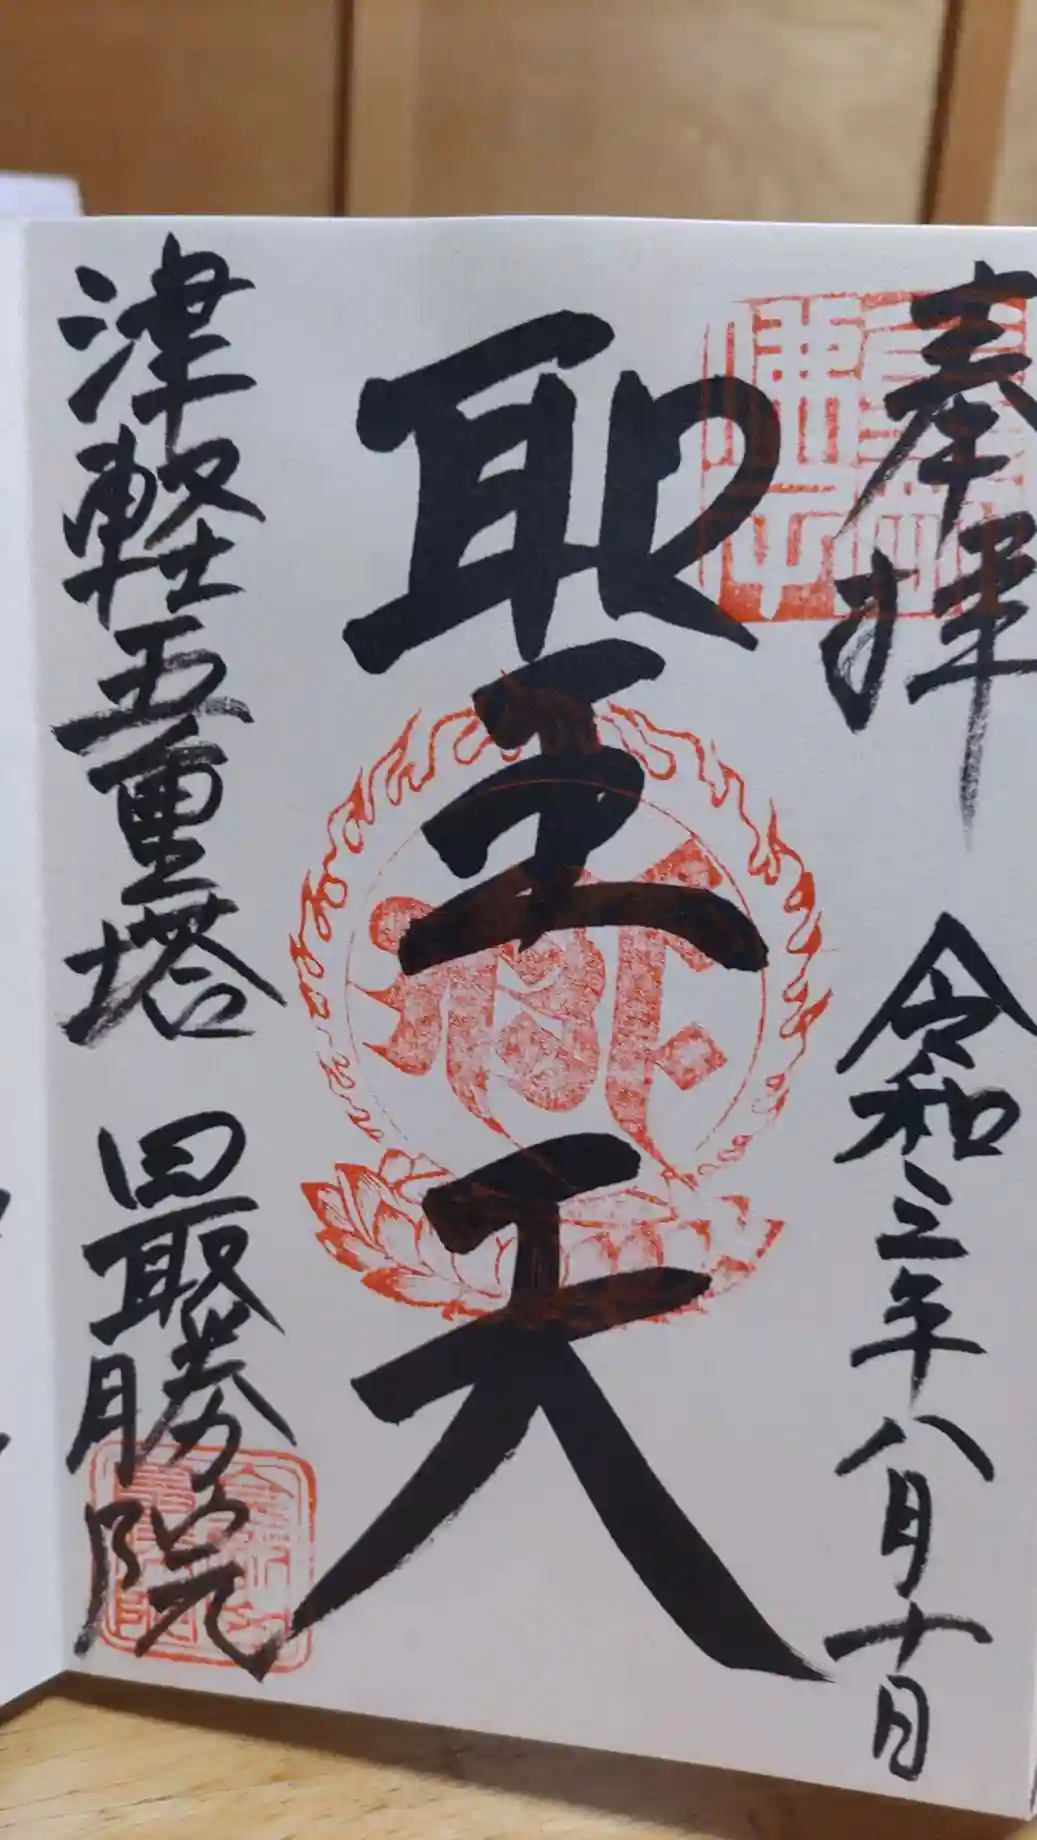 奉拝 令和三年八月十日
聖天
津軽五重塔 最勝院